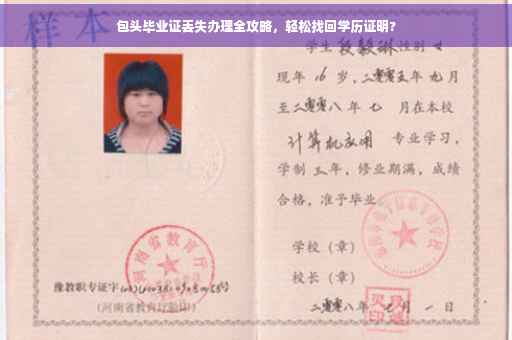 包头毕业证丢失办理全攻略，轻松找回学历证明?
样本
学生 段毅琳 性别 女
现年 16 岁，二零零五年 九月
至二零零八年 七 月在本校
计算机应用 专业学习，
学制 三 年，修业期满，成绩
合格，准予毕业
学校（章）
校长（章）
二零零八年 七 月 一 日
河南省教育厅
豫教职专证字
（河南省教育厅验印）